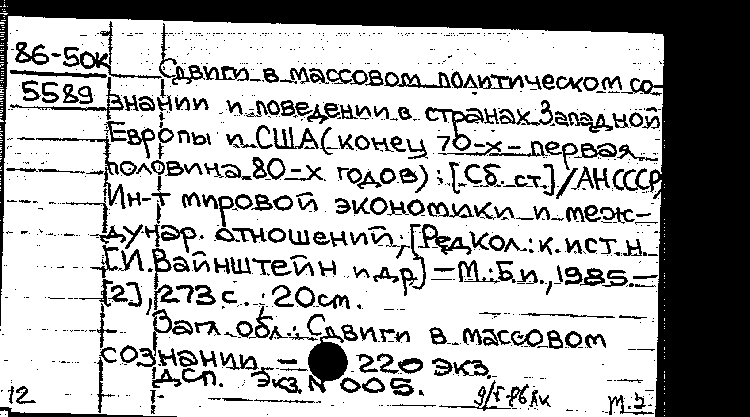 86-50К
5589
Сдвиги в массовом политическом со-
знании и поведении в странах Западной
Европы и США (конец 70-х - первая
половина 80-х годов) : [Сб. ст.] / АН СССР,
Ин-т мировой экономики и меж-
дунар. отношений; [Редкол.: к. ист. н.
Г.И. Вайнштейн и др.] — М.: Б.и., 1985. —
[2], 273 с. ; 20 см.
Загл. обл.: Сдвиги в массовом
сознании. — 220 экз.
ДСП. Экз. N 005.
12